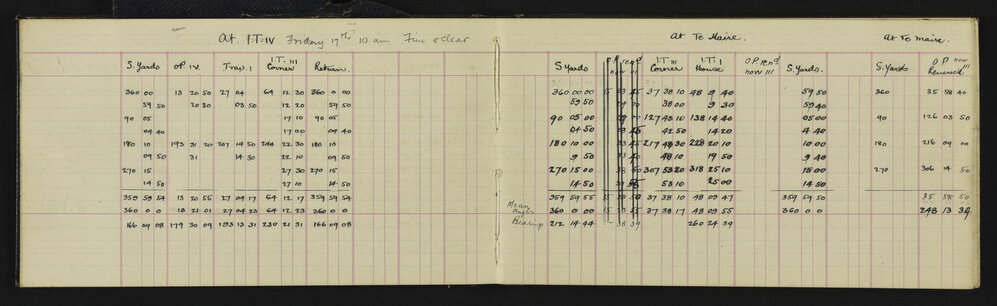 At I.T. IV Friday 17th 10 am Fine & clear
S. Yards OP IV. Trav. 1 I.T. III Corner Return.
360 00 13 20 50 27 04 64 12 30 360 0 00
59 50 20 30 03 50 12 20 59 50
90 05 17 10 90 05
04 40 17 00 04 40
180 10 193 31 20 207 14 50 244 22 30 180 10
09 50 31 14 30 22 10 09 50
270 15 27 30 270 15
14 50 27 10 14 50
359 59 54 13 20 55 27 04 17 64 12 17 359 59 54
360 0 0 13 21 01 27 04 23 64 12 23 360 0 0
166 09 08 179 30 09 193 13 31 230 21 31 166 09 08
At Te Maire.
S Yards I.T. III Corner I.T. I House O.P. ren'd now III S. Yards.
360 00 00 37 38 10 48 9 40 59 50
59 50 38 00 9 30 59 40
90 05 00 127 43 10 138 14 40 05 00
04 50 42 50 14 20 4 40
180 10 00 217 48 30 228 20 10 10 00
9 50 48 10 19 50 9 40
270 15 00 307 53 20 318 25 10 15 00
14 50 53 10 25 00 14 50
359 59 55 37 38 10 48 09 47 359 59 50
Mean Angle 360 0 00 37 38 17 48 09 55 360 0 0
Bearings 212 14 44 260 24 39
At Te Maire.
S. Yards O P now III Reversed
360 35 58 40
90 126 03 50
180 216 09 00
270 306 14 50
35 58 50
248 13 34